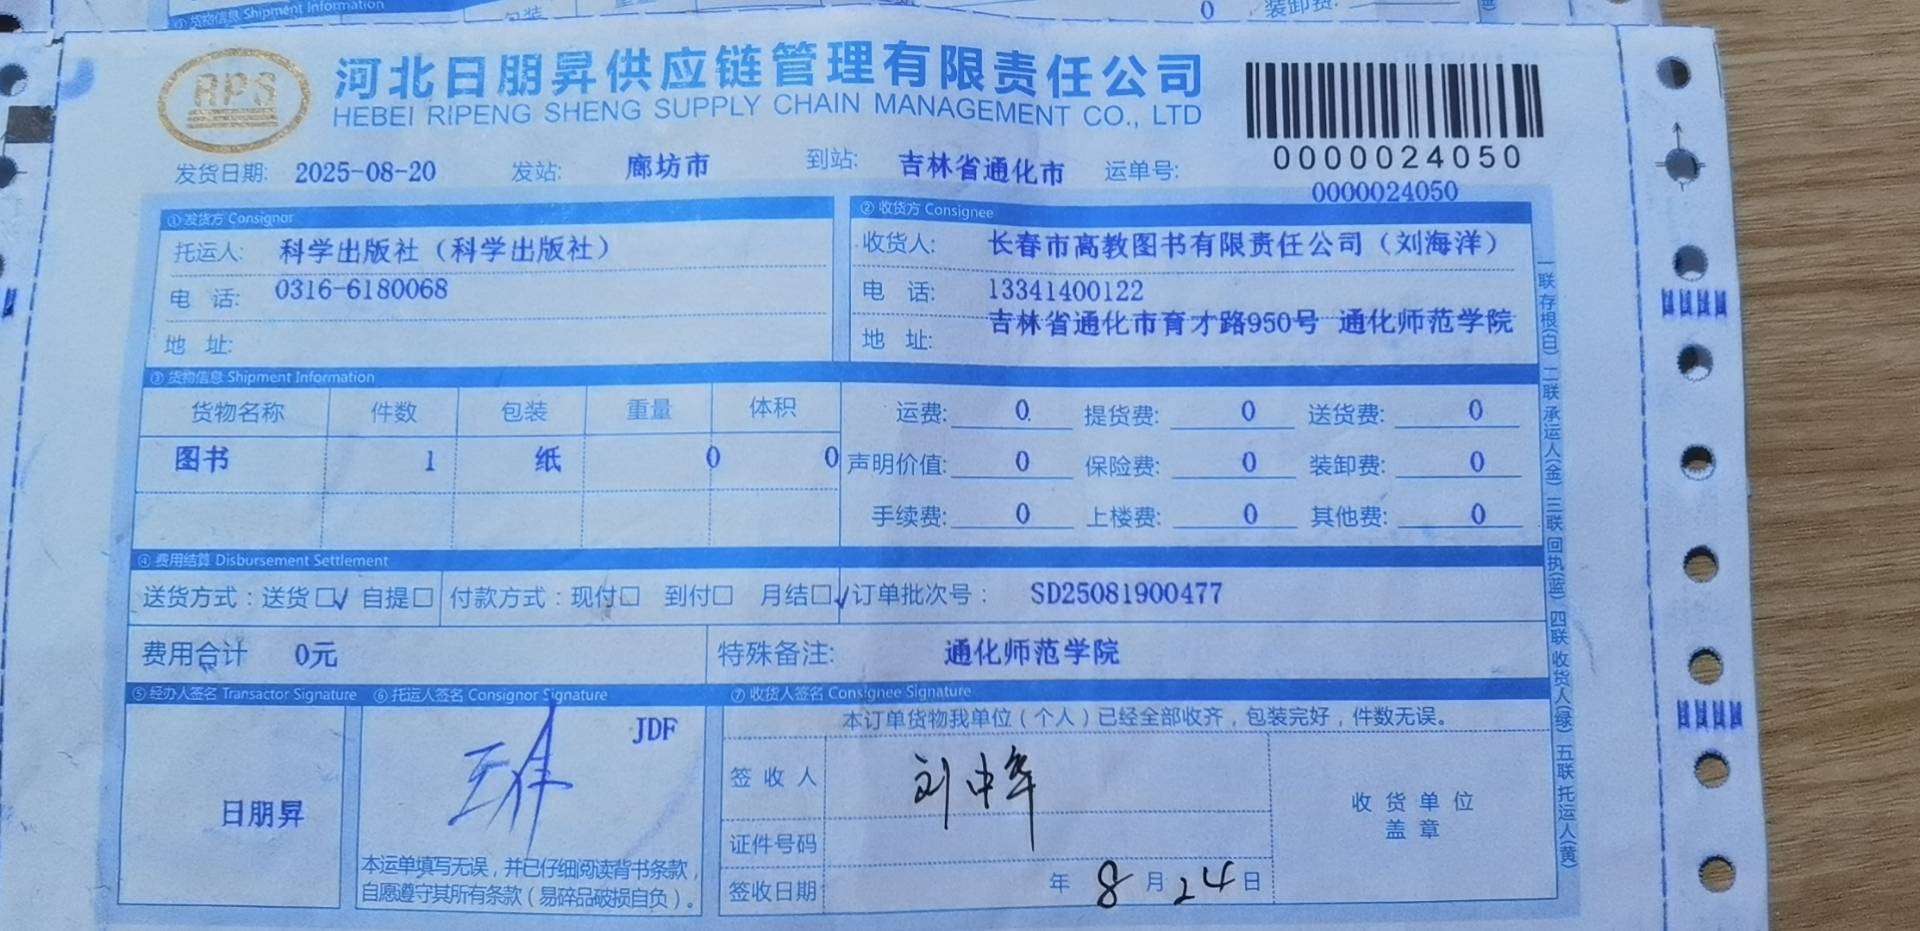 ③ 货物信息 Shipment Information
包装
0 装卸费:
RPS
河北日朋昇供应链管理有限责任公司
HEBEI RIPENG SHENG SUPPLY CHAIN MANAGEMENT CO., LTD
0000024050
发货日期: 2025-08-20 发站: 廊坊市 到站: 吉林省通化市 运单号: 0000024050
① 发货方 Consignor
托运人: 科学出版社（科学出版社）
电 话: 0316-6180068
地 址:
② 收货方 Consignee
收货人: 长春市高教图书有限责任公司（刘海洋）
电 话: 13341400122
地 址: 吉林省通化市育才路950号 通化师范学院
③ 货物信息 Shipment Information
货物名称 件数 包装 重量 体积
图书 1 纸 0 0
运费: 0 提货费: 0 送货费: 0
声明价值: 0 保险费: 0 装卸费: 0
手续费: 0 上楼费: 0 其他费: 0
④ 费用结算 Disbursement Settlement
送货方式：送货☐√ 自提☐ 付款方式：现付☐ 到付☐ 月结☐√ 订单批次号： SD25081900477
费用合计 0元 特殊备注: 通化师范学院
⑤ 经办人签名 Transactor Signature ⑥ 托运人签名 Consignor Signature ⑦ 收货人签名 Consignee Signature
日朋昇
JDF
本运单填写无误，并已仔细阅读背书条款，
自愿遵守其所有条款（易碎品破损自负）。
本订单货物我单位（个人）已经全部收齐，包装完好，件数无误。
签收人 刘中军
证件号码
签收日期 年 8 月 24 日
收货单位
盖章
一联存根(白) 二联承运人(金) 三联回执(蓝) 四联收货人(绿) 五联托运人(黄)